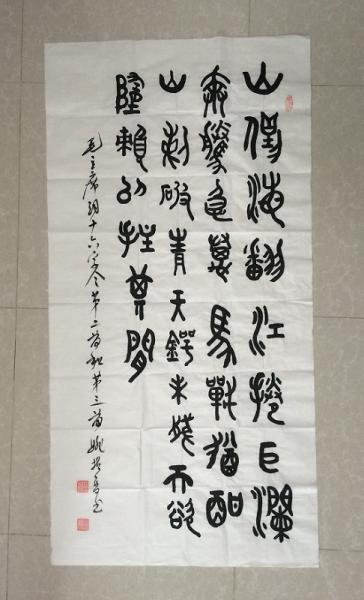 山倒海翻江捲巨瀾
奔騰急萬馬戰猶酣
山刺破青天鍔未殘天欲
墮賴以拄其間
毛主席詞十六字令第二首和第三首 姚